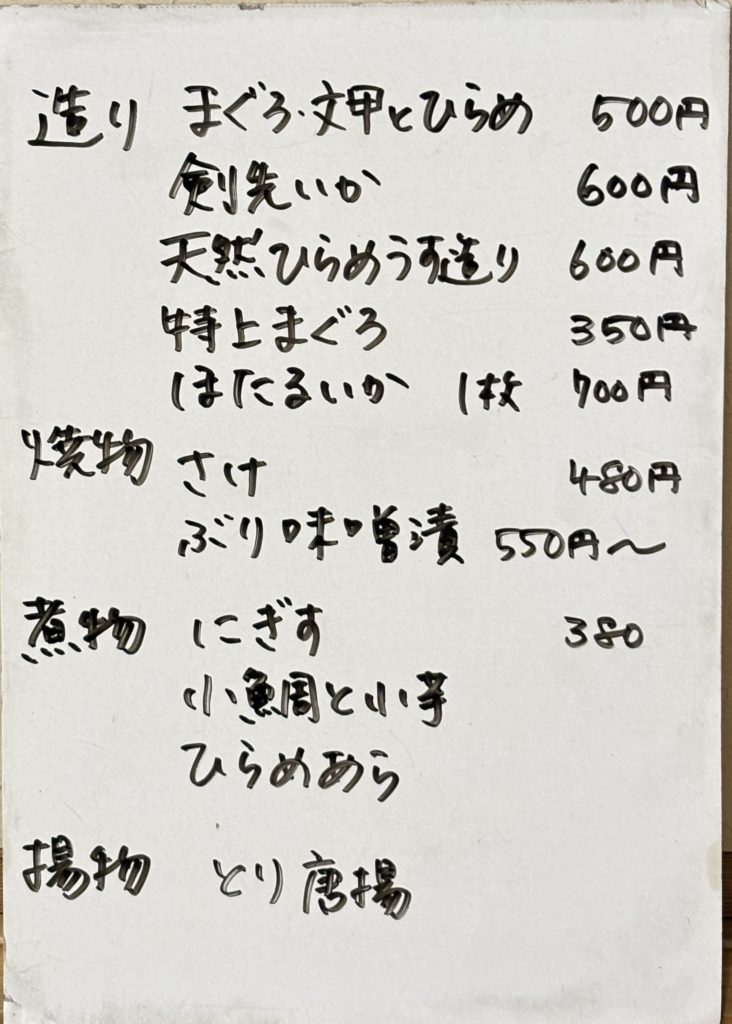 造り まぐろ・文甲とひらめ 500円
剣先いか 600円
天然ひらめうす造り 600円
特上まぐろ 350円
ほたるいか 1枚 700円
焼物 さけ 480円
ぶり味噌漬 550円〜
煮物 にぎす 380
小鯛と小芋
ひらめあら
揚物 とり唐揚